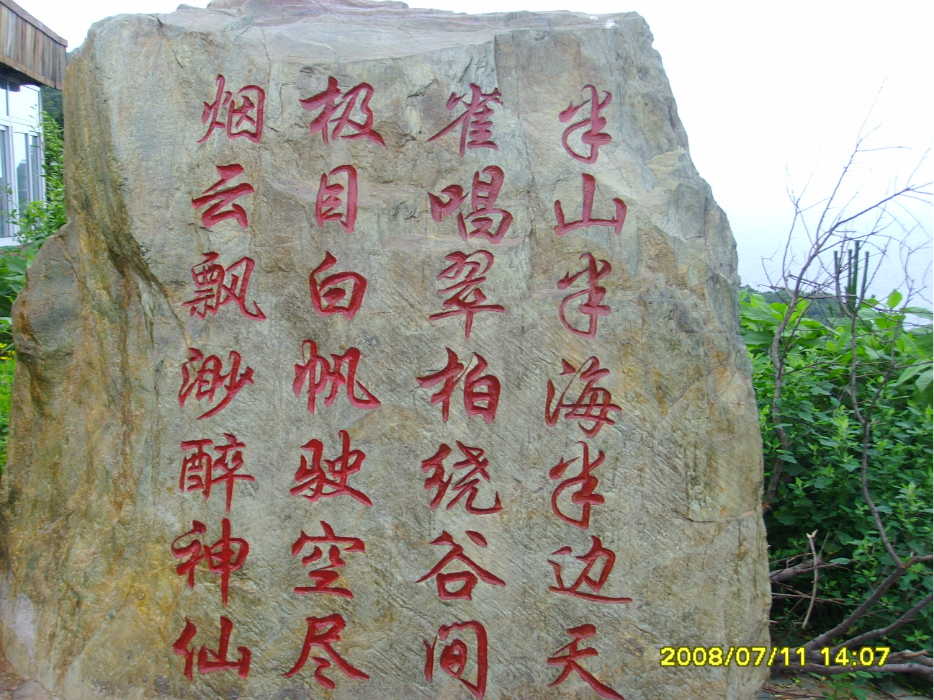 半山半海半边天
雀唱翠柏绕谷间
极目白帆驶空尽
烟云飘渺醉神仙
2008/07/11 14:07